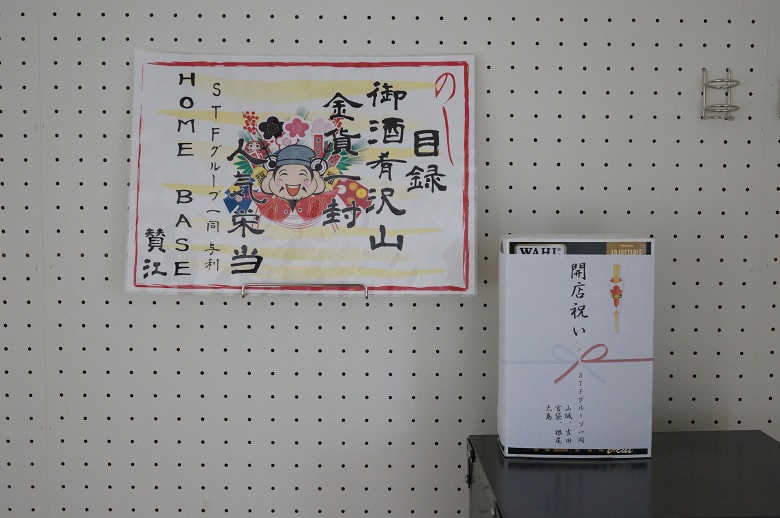 のし
目録
御酒肴沢山
金貨一封
人気栄当
STFグループ一同 与利
HOME BASE
賛江
WAHL
ADJUSTABLE
開店祝い
STFグループ一同
山城、吉田
宮袋、根尾
大島